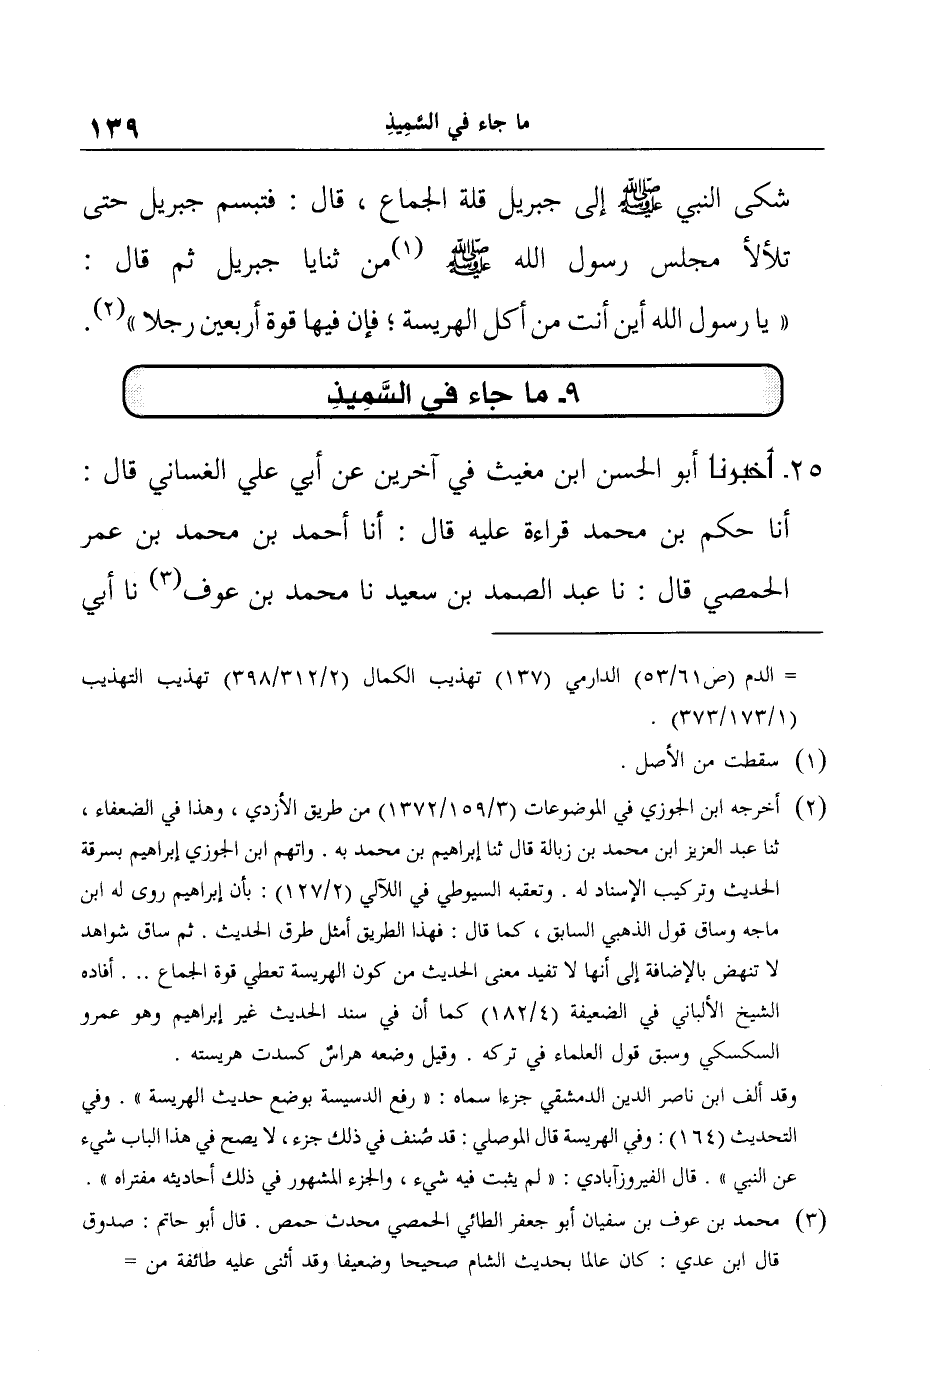 ما جاء في السَّمِيذِ ١٣٩
شكى النبي ﷺ إلى جبريل قلة الجماع ، قال : فتبسم جبريل حتى
تلألأ مجلس رسول الله ﷺ (١)من ثنايا جبريل ثم قال :
« يا رسول الله أين أنت من أكل الهريسة ؛ فإن فيها قوة أربعين رجلا »(٢).
٩ـ ما جاء في السَّمِيذِ
٢٥ـ أخبرنا أبو الحسن ابن مغيث في آخرين عن أبي علي الغساني قال :
أنا حكم بن محمد قراءة عليه قال : أنا أحمد بن محمد بن عمر
الحمصي قال : نا عبد الصمد بن سعيد نا محمد بن عوف(٣) نا أبي
= الدم (ص٥٣/٦١) الدارمي (١٣٧) تهذيب الكمال (٣٩٨/٣١٢/٢) تهذيب التهذيب
(٣٧٣/١٧٣/١) .
(١) سقطت من الأصل .
(٢) أخرجه ابن الجوزي في الموضوعات (١٣٧٢/١٥٩/٣) من طريق الأزدي ، وهذا في الضعفاء ،
ثنا عبد العزيز ابن محمد بن زبالة قال ثنا إبراهيم بن محمد به . واتهم ابن الجوزي إبراهيم بسرقة
الحديث وتركيب الإسناد له . وتعقبه السيوطي في اللآلي (١٢٧/٢) : بأن إبراهيم روى له ابن
ماجه وساق قول الذهبي السابق ، كما قال : فهذا الطريق أمثل طرق الحديث . ثم ساق شواهد
لا تنهض بالإضافة إلى أنها لا تفيد معنى الحديث من كون الهريسة تعطي قوة الجماع .. . أفاده
الشيخ الألباني في الضعيفة (١٨٢/٤) كما أن في سند الحديث غير إبراهيم وهو عمرو
السكسكي وسبق قول العلماء في تركه . وقيل وضعه هراسٌ كسدت هريسته .
وقد ألف ابن ناصر الدين الدمشقي جزءا سماه : « رفع الدسيسة بوضع حديث الهريسة » . وفي
التحديث (١٦٤) : وفي الهريسة قال الموصلي : قد صُنف في ذلك جزء ، لا يصح في هذا الباب شيء
عن النبي » . قال الفيروزآبادي : « لم يثبت فيه شيء ، والجزء المشهور في ذلك أحاديثه مفتراه » .
(٣) محمد بن عوف بن سفيان أبو جعفر الطائي الحمصي محدث حمص . قال أبو حاتم : صدوق
قال ابن عدي : كان عالما بحديث الشام صحيحا وضعيفا وقد أثنى عليه طائفة من =